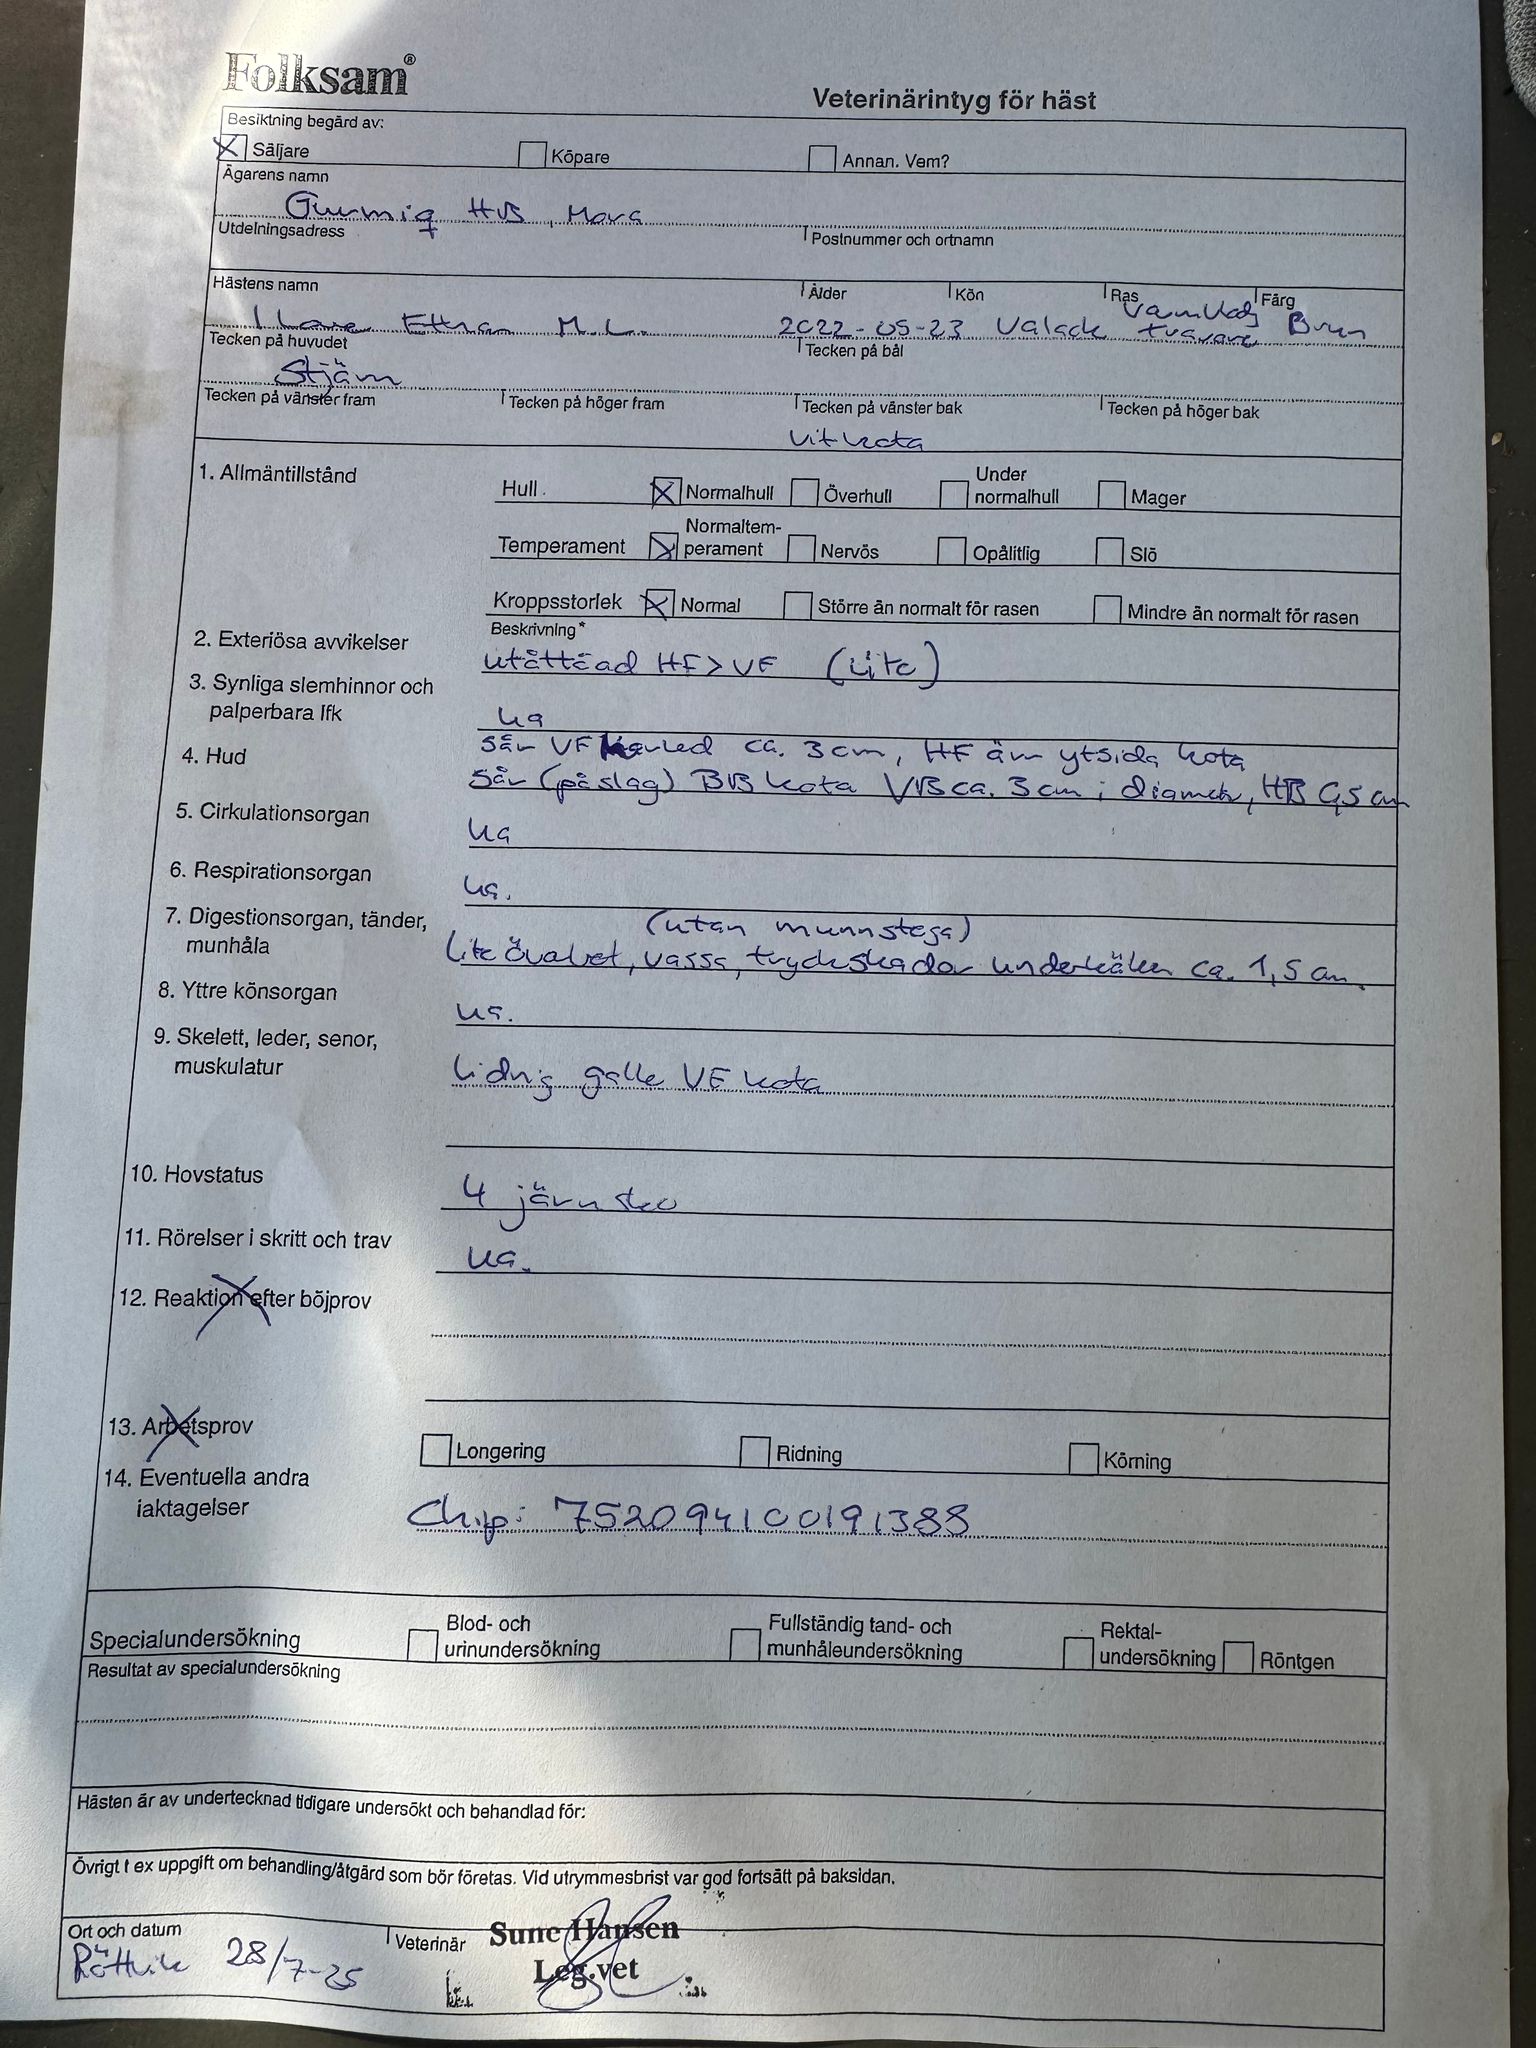 Folksam®
Veterinärintyg för häst
Besiktning begärd av:
Säljare Köpare Annan. Vem?
Ägarens namn
HB, Mora
Utdelningsadress Postnummer och ortnamn
Hästens namn Ålder Kön Ras Färg
I Love Ethan M.L. 2022-05-23 Valack Varmblodig travare Brun
Tecken på huvudet Tecken på bål
Stjärn
Tecken på vänster fram Tecken på höger fram Tecken på vänster bak Tecken på höger bak
vit kota
1. Allmäntillstånd
Hull. Normalhull Överhull Under normalhull Mager
Temperament Normaltem-perament Nervös Opålitlig Slö
Kroppsstorlek Normal Större än normalt för rasen Mindre än normalt för rasen
Beskrivning*
2. Exteriösa avvikelser utåttåad HF > VF (lite)
3. Synliga slemhinnor och
palperbara lfk ua
4. Hud sår VF ca. 3 cm, HF ärr ytsida kota
sår (påslag) BB kota VB ca. 3 cm i diameter, HB 0,5 cm
5. Cirkulationsorgan ua
6. Respirationsorgan ua.
7. Digestionsorgan, tänder, (utan munstege)
munhåla lite ovalbet, vassa, tryckskador underkäken ca. 1,5 cm.
8. Yttre könsorgan ua.
9. Skelett, leder, senor,
muskulatur lidrig galle VF kota
10. Hovstatus 4 järnsko
11. Rörelser i skritt och trav ua.
12. Reaktion efter böjprov
13. Arbetsprov Longering Ridning Körning
14. Eventuella andra
iaktagelser Chip: 752094100191388
Specialundersökning Blod- och urinundersökning Fullständig tand- och munhåleundersökning Rektal-undersökning Röntgen
Resultat av specialundersökning
Hästen är av undertecknad tidigare undersökt och behandlad för:
Övrigt t ex uppgift om behandling/åtgärd som bör företas. Vid utrymmesbrist var god fortsätt på baksidan.
Ort och datum Veterinär Sune Hansen
Rättvik 28/7-25 Leg.vet